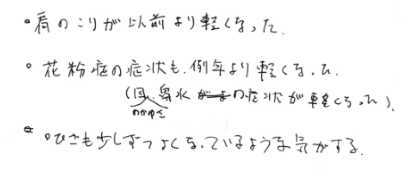 ・肩のこりが以前より軽くなった.
・花粉症の症状も、例年より軽くなった
(目 鼻水の症状が軽くなった).
のかゆさ
・ひざも少しずつよくなっているような気がする.